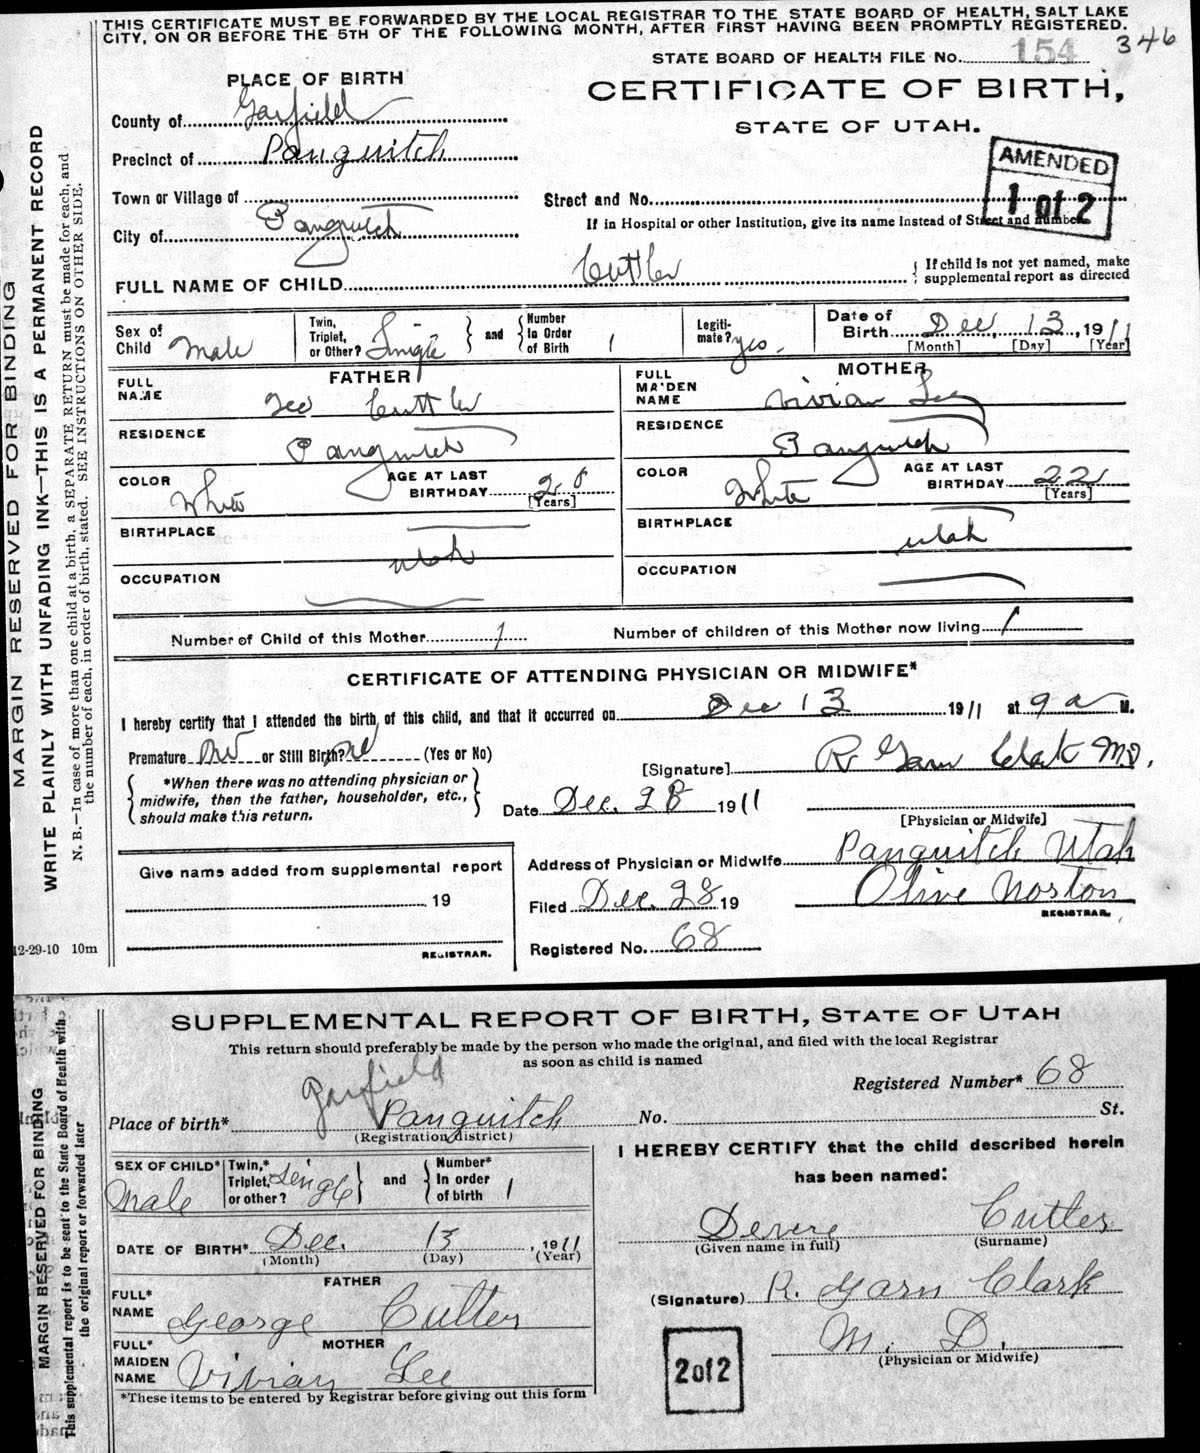 THIS CERTIFICATE MUST BE FORWARDED BY THE LOCAL REGISTRAR TO THE STATE BOARD OF HEALTH, SALT LAKE
CITY, ON OR BEFORE THE 5TH OF THE FOLLOWING MONTH, AFTER FIRST HAVING BEEN PROMPTLY REGISTERED.
346
STATE BOARD OF HEALTH FILE No. 154
PLACE OF BIRTH
CERTIFICATE OF BIRTH,
STATE OF UTAH.
County of Garfield
Precinct of Panguitch
AMENDED
1 of 2
Town or Village of
Street and No.
City of Panguitch
If in Hospital or other Institution, give its name instead of Street and number.
FULL NAME OF CHILD Cuttler
If child is not yet named, make
supplemental report as directed
Sex of Child Male
Twin, Triplet, or Other? Single
and Number In Order of Birth 1
Legiti-mate? yes.
Date of Birth Dec, 13, 1911
[Month] [Day] [Year]
FATHER
FULL NAME Geo Cuttler
RESIDENCE Panguitch
COLOR White
AGE AT LAST BIRTHDAY
[Years]
BIRTHPLACE Utah
OCCUPATION
MOTHER
FULL MAIDEN NAME Vivian Lee
RESIDENCE Panguitch
COLOR White
AGE AT LAST BIRTHDAY 22
[Years]
BIRTHPLACE Utah
OCCUPATION
Number of Child of this Mother 1
Number of children of this Mother now living 1
CERTIFICATE OF ATTENDING PHYSICIAN OR MIDWIFE*
I hereby certify that I attended the birth of this child, and that it occurred on Dec 13 1911 at 9 a M.
Premature no or Still Birth? no (Yes or No)
[Signature] R Garn Clark MD.
*When there was no attending physician or
midwife, then the father, householder, etc.,
should make this return.
Date Dec. 28 1911
[Physician or Midwife]
Address of Physician or Midwife Panguitch Utah
Give name added from supplemental report
19
REGISTRAR.
Filed Dec. 28 19
Olive Norton
REGISTRAR.
Registered No. 68
12-29-10 10m
MARGIN RESERVED FOR BINDING
WRITE PLAINLY WITH UNFADING INK—THIS IS A PERMANENT RECORD
N. B.—In case of more than one child at a birth, a SEPARATE RETURN must be made for each, and
the number of each, in order of birth, stated. SEE INSTRUCTIONS ON OTHER SIDE.
SUPPLEMENTAL REPORT OF BIRTH, STATE OF UTAH
This return should preferably be made by the person who made the original, and filed with the local Registrar
as soon as child is named
Garfield
Registered Number* 68
Place of birth* Panguitch
(Registration district)
No. St.
SEX OF CHILD* Male
Twin,* Triplet, or other? Single
and Number* In order of birth 1
DATE OF BIRTH* Dec. 13, 1911
(Month) (Day) (Year)
FATHER
FULL* NAME George Cutler
MOTHER
FULL* MAIDEN NAME Vivian Lee
*These items to be entered by Registrar before giving out this form
I HEREBY CERTIFY that the child described herein
has been named:
Devere Cutler
(Given name in full) (Surname)
(Signature) R. Garn Clark
M. D.
(Physician or Midwife)
2 of 2
MARGIN RESERVED FOR BINDING
This supplemental report is to be sent to the State Board of Health with
the original report or forwarded later